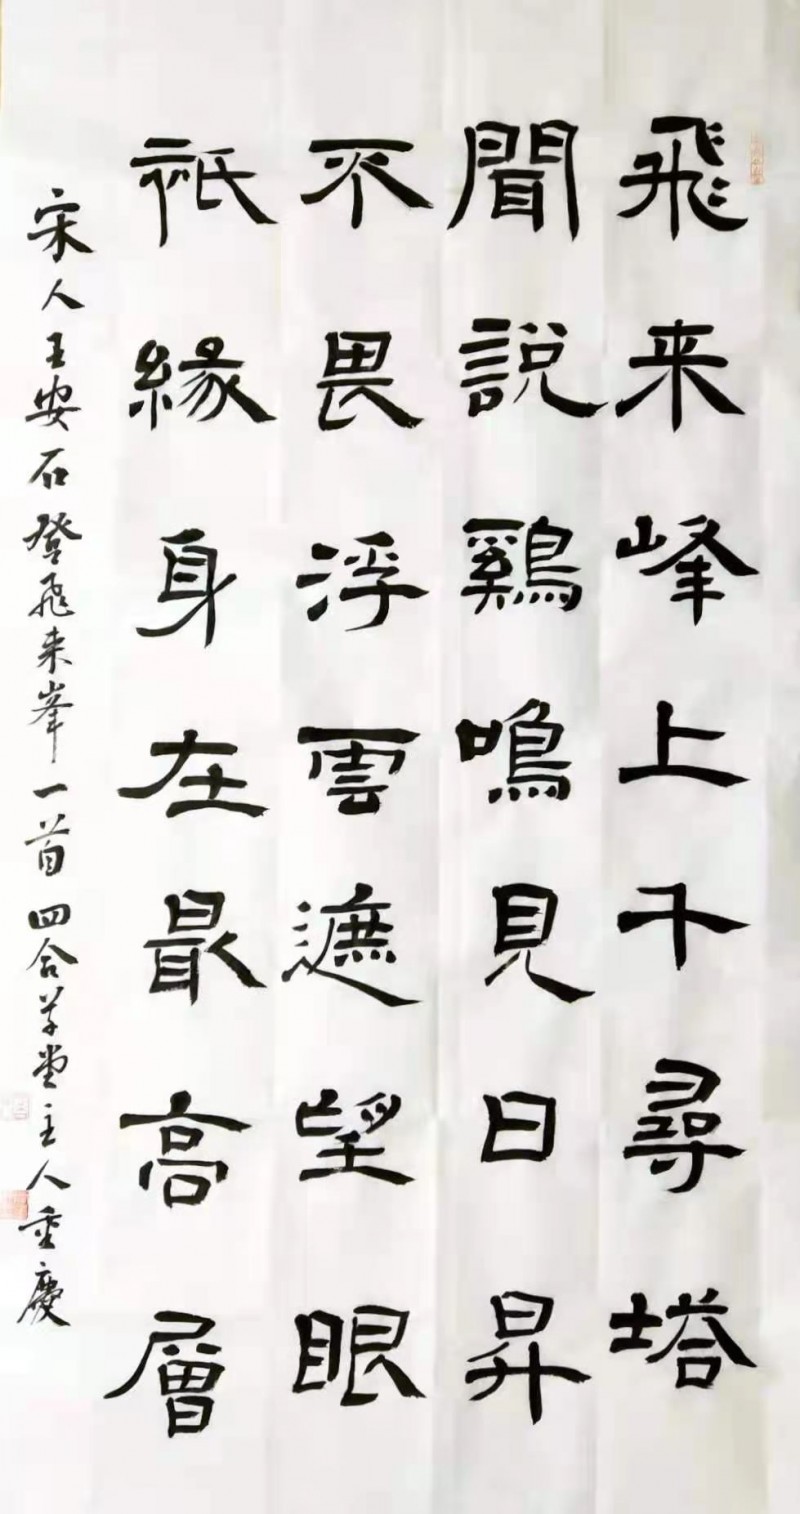 飛来峰上千尋塔
聞說鷄鳴見日昇
不畏浮雲遮望眼
祇緣身在最高層
宋人王安石登飛来峯一首 四合草堂主人重慶